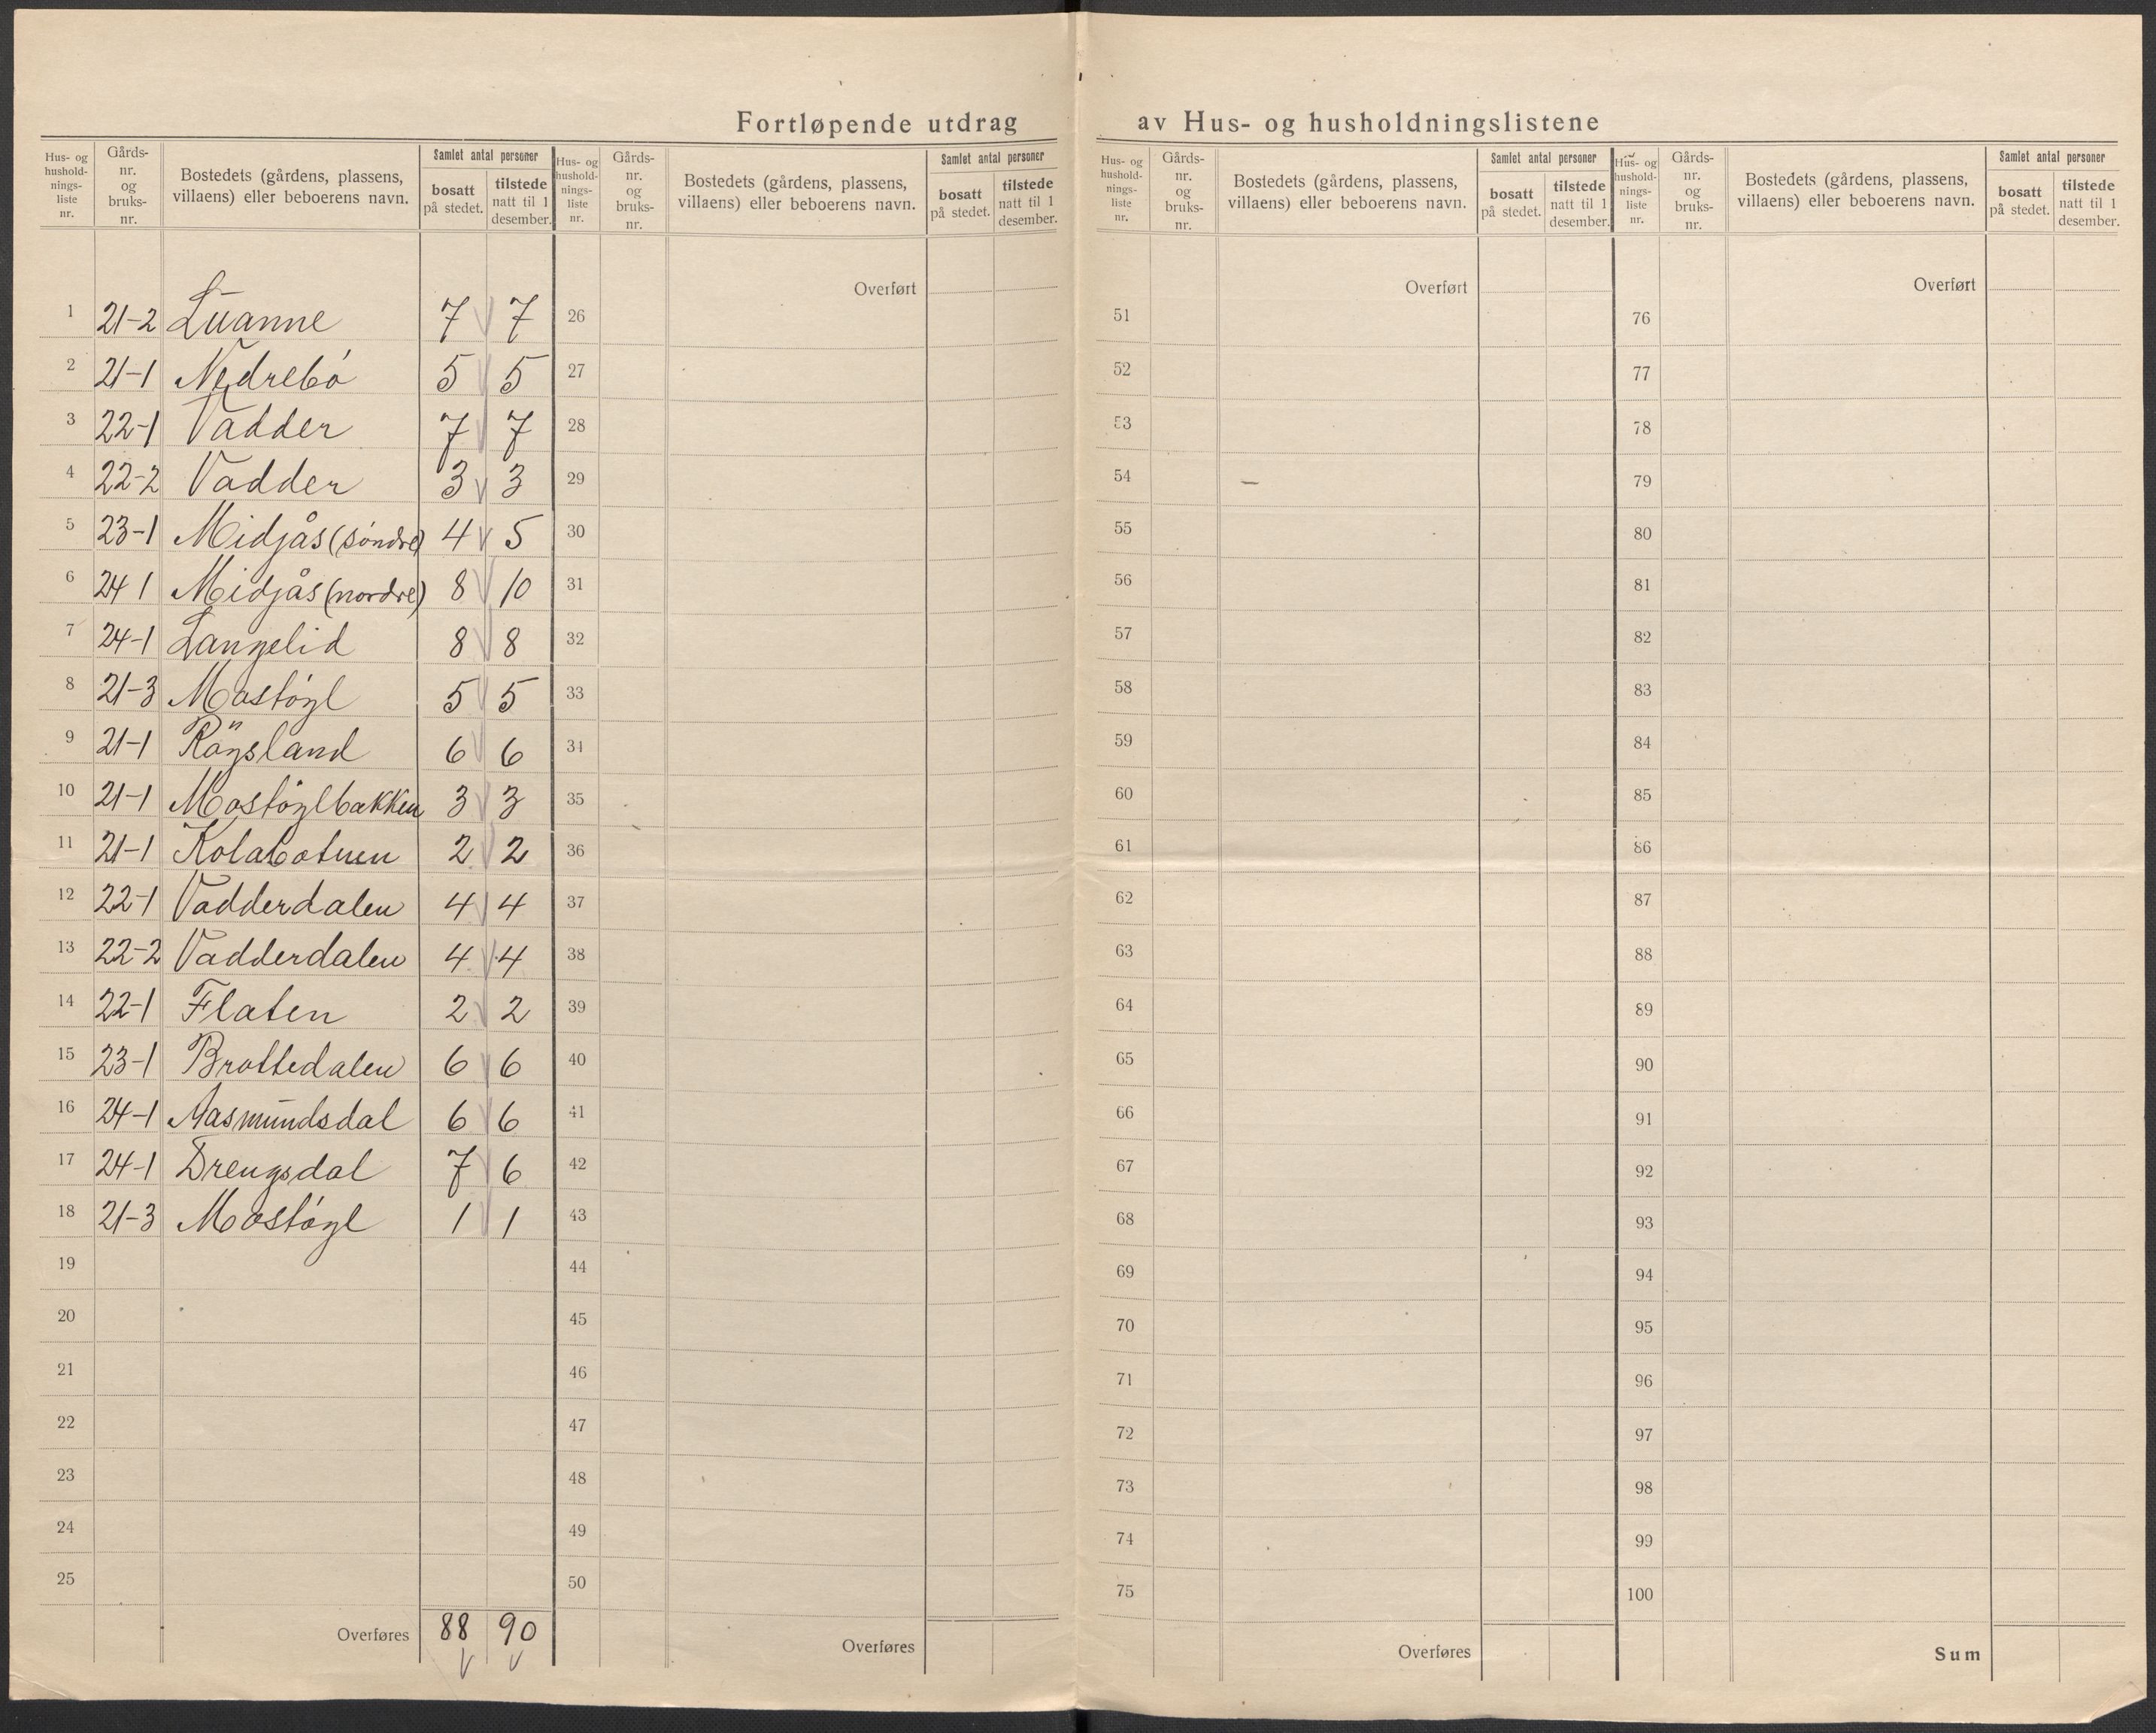 Fortløpende utdrag av Hus- og husholdningslistene
Hus- og husholdnings-liste nr. Gårds-nr. og bruks-nr. Bostedets (gårdens, plassens, villaens) eller beboerens navn. Samlet antal personer bosatt på stedet. tilstede natt til 1 desember.
1 21-2 Luanne 7 7
2 21-1 Nedrebó 5 5
3 22-1 Vadder 7 7
4 22-2 Vadder 3 3
5 23-1 Midjås (sóndre) 4 5
6 24 1 Midjås (nordre) 8 10
7 24-1 Langelid 8 8
8 21-3 Mostóyl 5 5
9 21-1 Röysland 6 6
10 21-1 Mostóylbakken 3 3
11 21-1 Kolabotnen 2 2
12 22-1 Vadderdalen 4 4
13 22-2 Vadderdalen 4 4
14 22-1 Flaten 2 2
15 23-1 Brottedalen 6 6
16 24-1 Aasmundsdal 6 6
17 24-1 Drengsdal 7 6
18 21-3 Mostóyl 1 1
19
20
21
22
23
24
25
Overføres 88 90
Hus- og husholdnings-liste nr. Gårds-nr. og bruks-nr. Bostedets (gårdens, plassens, villaens) eller beboerens navn. Samlet antal personer bosatt på stedet. tilstede natt til 1 desember.
Overført
26
27
28
29
30
31
32
33
34
35
36
37
38
39
40
41
42
43
44
45
46
47
48
49
50
Overføres
Hus- og husholdnings-liste nr. Gårds-nr. og bruks-nr. Bostedets (gårdens, plassens, villaens) eller beboerens navn. Samlet antal personer bosatt på stedet. tilstede natt til 1 desember.
Overført
51
52
53
54
55
56
57
58
59
60
61
62
63
64
65
66
67
68
69
70
71
72
73
74
75
Overføres
Hus- og husholdnings-liste nr. Gårds-nr. og bruks-nr. Bostedets (gårdens, plassens, villaens) eller beboerens navn. Samlet antal personer bosatt på stedet. tilstede natt til 1 desember.
Overført
76
77
78
79
80
81
82
83
84
85
86
87
88
89
90
91
92
93
94
95
96
97
98
99
100
Sum